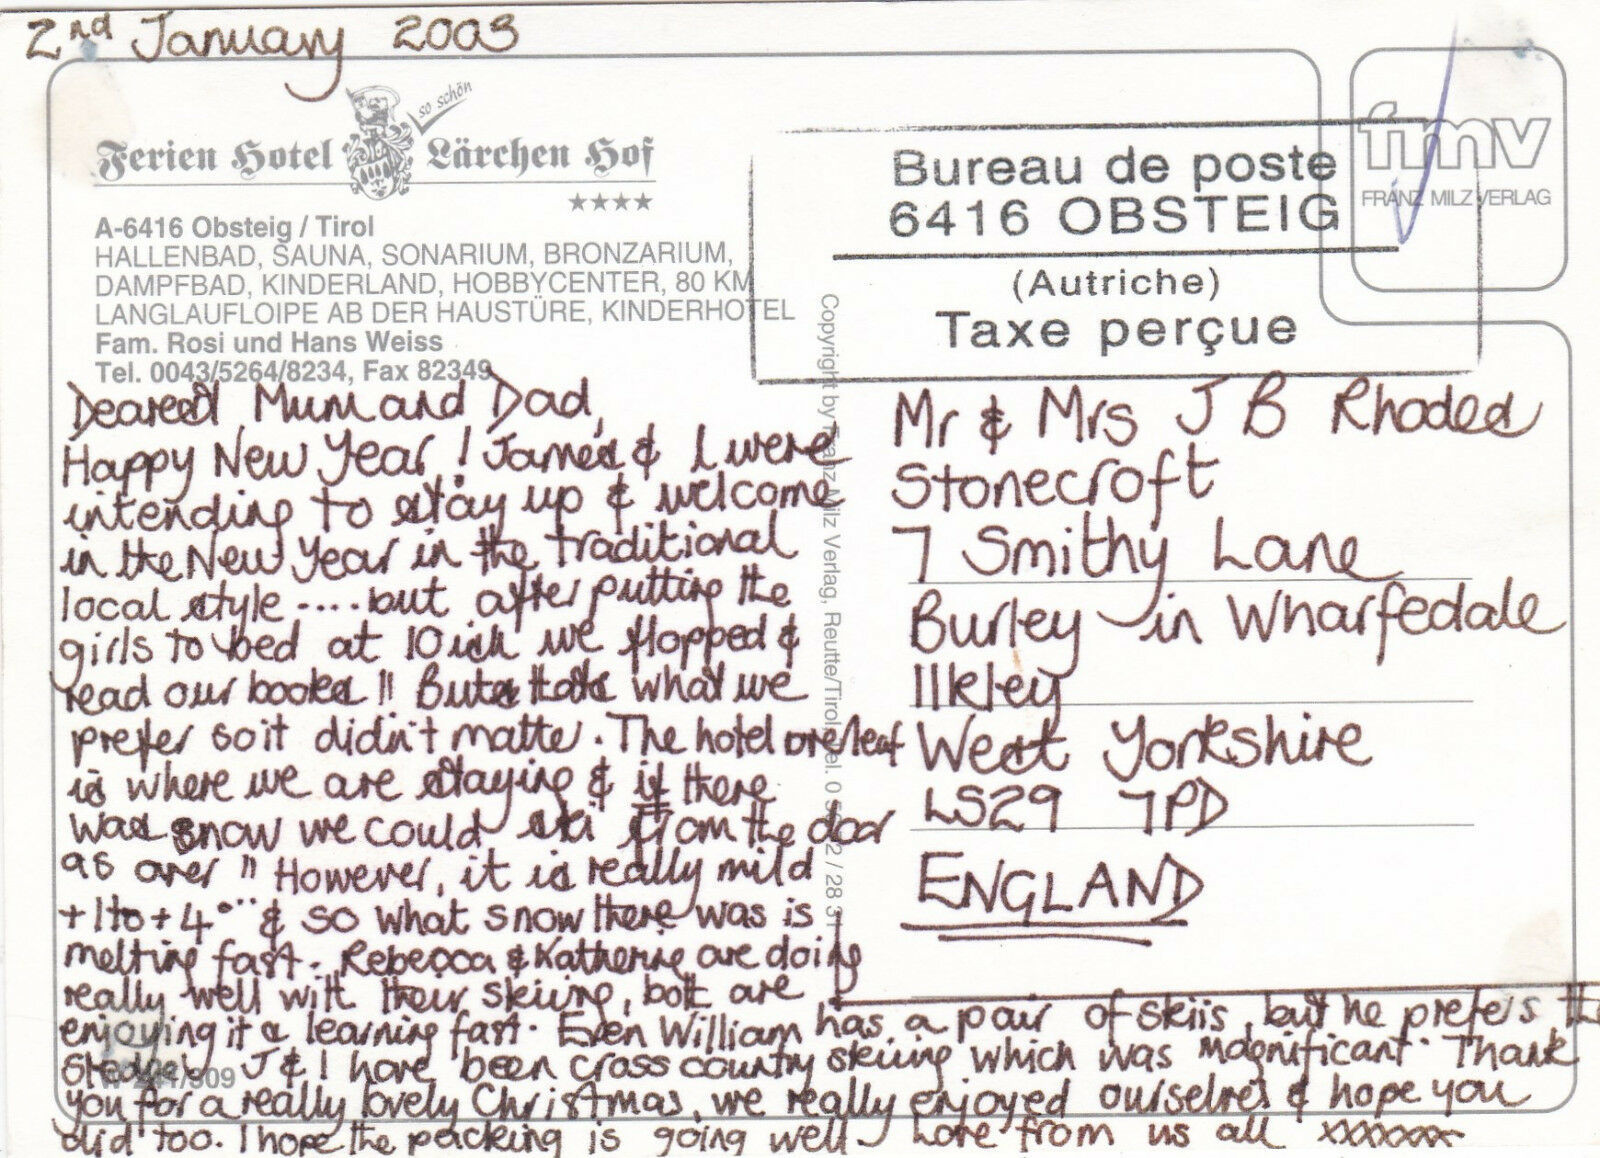 2nd January 2003
so schön
Ferien Hotel Lärchen Hof
★★★★
A-6416 Obsteig / Tirol
HALLENBAD, SAUNA, SONARIUM, BRONZARIUM,
DAMPFBAD, KINDERLAND, HOBBYCENTER, 80 KM
LANGLAUFLOIPE AB DER HAUSTÜRE, KINDERHOTEL
Fam. Rosi und Hans Weiss
Tel. 0043/5264/8234, Fax 82349
Dearest Mum and Dad,
Happy New Year! James & I were
intending to stay up & welcome
in the New Year in the traditional
local style ....but after putting the
girls to bed at 10ish we flopped &
read our books!! But thats what we
prefer so it didn't matter. The hotel overleaf
is where we are staying & if there
was snow we could ski from the door
as over" However, it is really mild
+1 to +4° & so what snow there was is
melting fast. Rebecca & Katherine are doing
really well with their skiing, both are
enjoying it & learning fast. Even William has a pair of skiis, but he prefers the
sledge! J & I have been cross country skiing which was magnificant. Thank
you for a really lovely Christmas, we really enjoyed ourselves & hope you
did too. I hope the packing is going well. Love from us all xxxxxxx
Bureau de poste
6416 OBSTEIG
(Autriche)
Taxe perçue
fmv
FRANZ MILZ VERLAG
Mr & Mrs J B Rhodes
Stonecroft
7 Smithy Lane
Burley in Wharfedale
Ilkley
West Yorkshire
LS29 7PD
ENGLAND
Copyright by Franz Milz Verlag, Reutte/Tirol